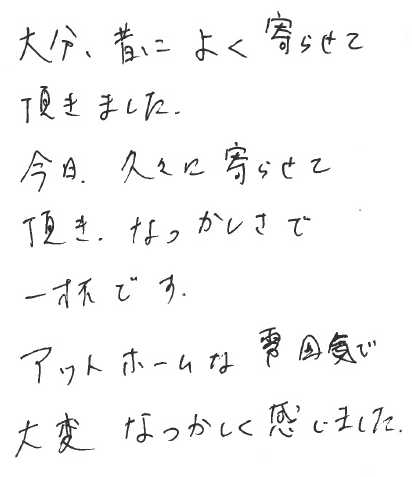 大分、昔に よく 寄らせて
頂きました.
今日. 久々に 寄らせて
頂き. なつかしさで
一杯です.
アットホームな 雰囲気で
大変 なつかしく 感じました.